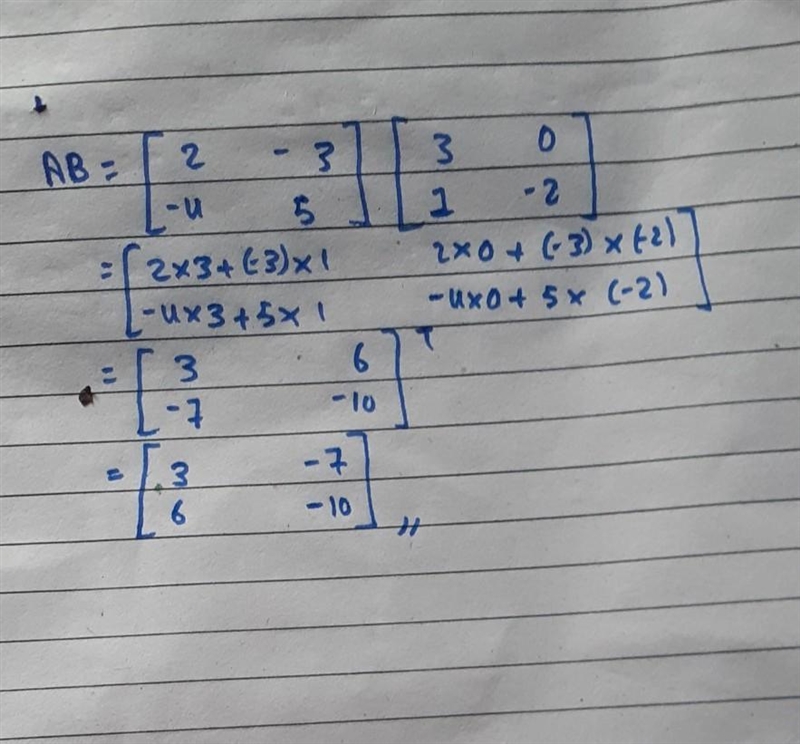 AB = [ 2 - 3 ] [ 3 0 ]
[ -4 5 ] [ 1 -2 ]
= [ 2×3+(-3)×1 2×0+(-3)×(-2) ]
[ -4×3+5×1 -4×0+5×(-2) ]
= [ 3 6 ] T
[ -7 -10 ]
= [ 3 -7 ]
[ 6 -10 ] //